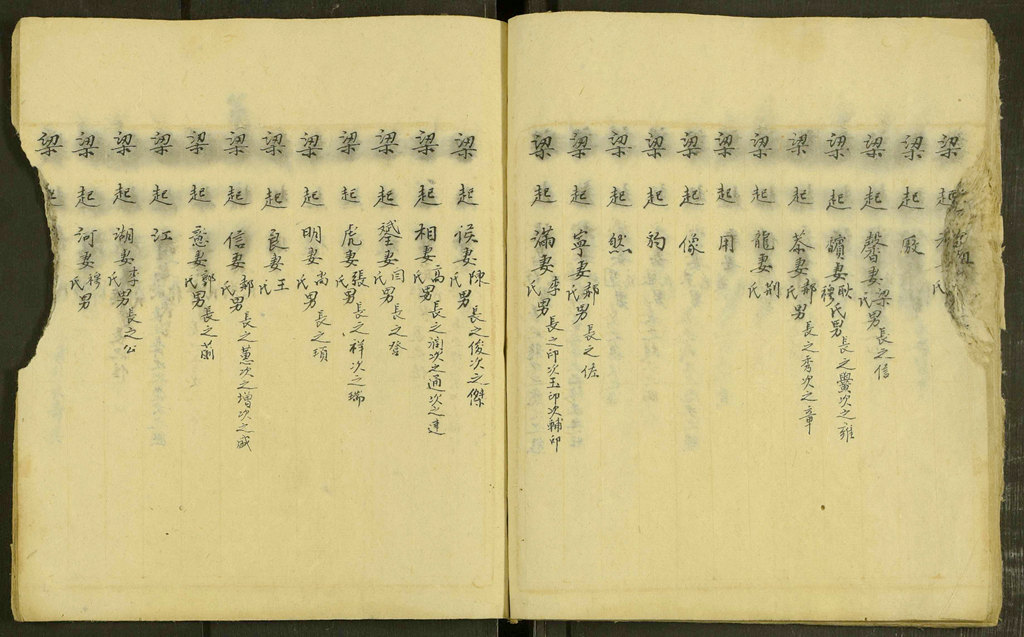 梁起
梁起廄
梁起馨妻梁氏男長之信
梁起續妻耿穆氏男長之爨次之雍
梁起恭妻郝氏男長之秀次之章
梁起龍妻荊氏
梁起用
梁起像
梁起豹
梁起然
梁起寧妻郝氏男長之佐
梁起滿妻李氏男長之印次玉印次輔印
梁起誤妻陳氏男長之俊次之傑
梁起相妻高氏男長之潤次之通次之建
梁起鑾妻閆氏男長之登
梁起虎妻張氏男長之祥次之瑞
梁起明妻尚氏男長之頊
梁起良妻王氏
梁起信妻郝氏男長之蕙次之增次之咸
梁起意妻郭氏男長之荊
梁起江
梁起湖妻李氏男長之公
梁起河妻穆氏男
梁